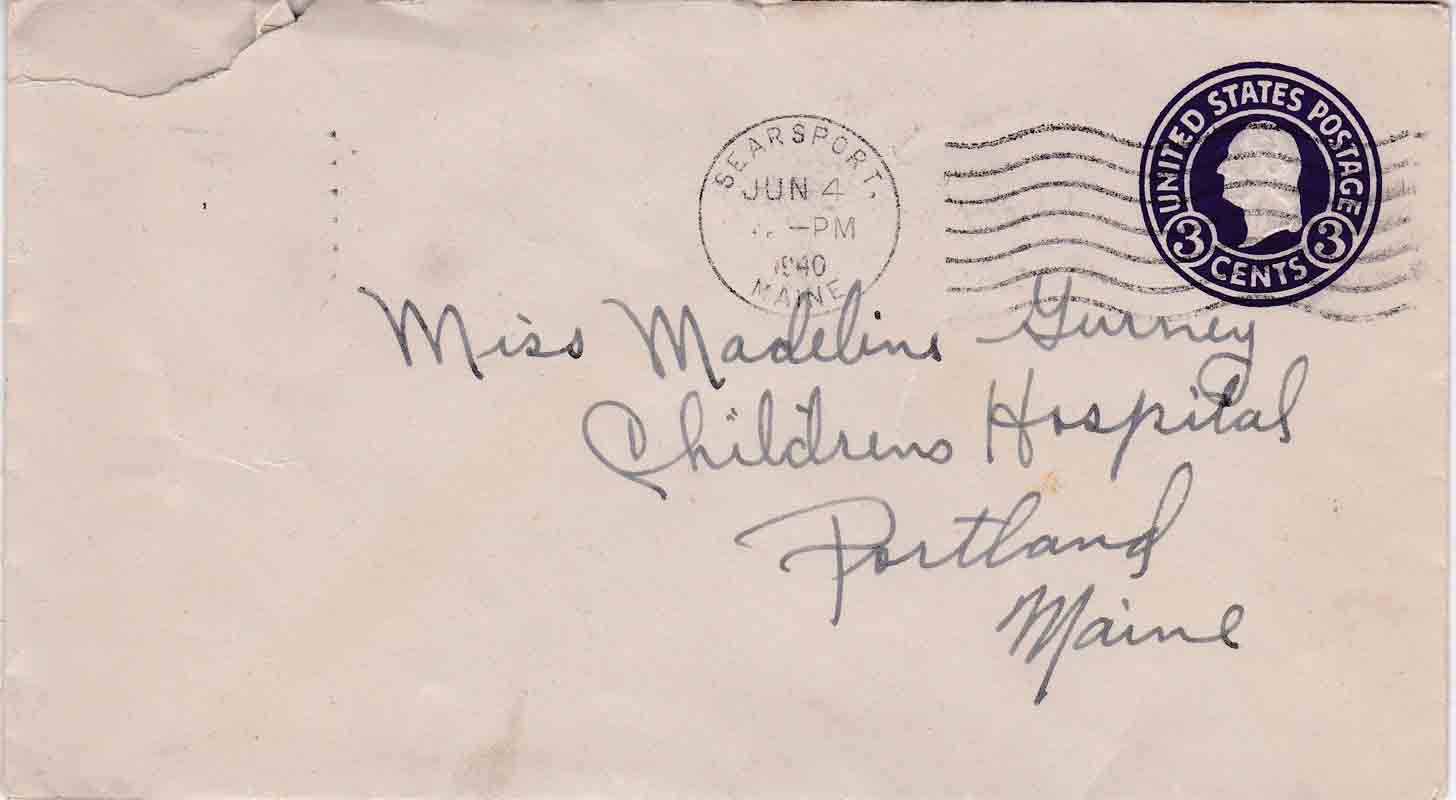 UNITED STATES POSTAGE
3 CENTS 3
SEARSPORT,
JUN 4
-PM
1940
MAINE
Miss Madeline Gurney
Childrens Hospital
Portland
Maine